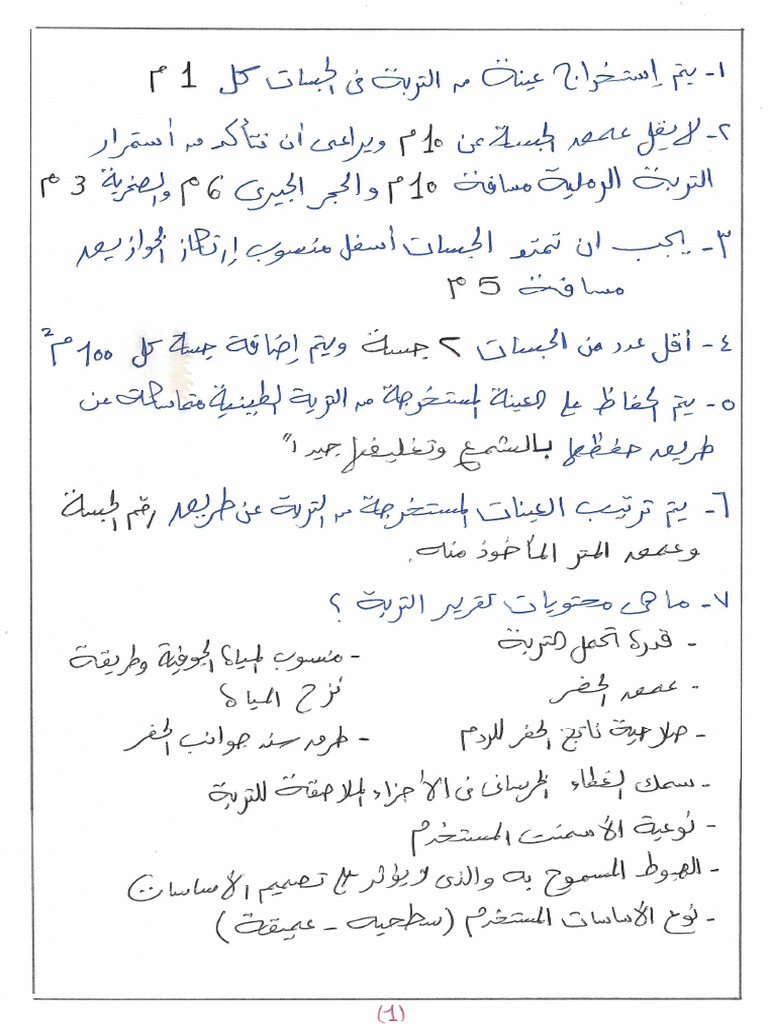 ١- يتم إستخراج عينة من التربة فى الجسات كل 1 م
٢- لا يقل عمق الجسة عن 10 م ويراعى أن نتأكد من أستمرار
التربة الرملية مسافة 10 م والحجر الجيرى 6 م والصخرية 3 م
٣- يجب ان تمتد الجسات أسفل منسوب إرتكاز الخوازيق
مسافة 5 م
٤- أقل عدد من الجسات ٢ جسة ويتم إضافة جسة كل 100 م²
٥- يتم الحفاظ على العينة المستخرجة من التربة الطينية متماسكة عن
طريق حفظها بالشمع وتغليفها جيداً
٦- يتم ترتيب العينات المستخرجة من التربة عن طريق رقم الجسة
وعمق المتر المأخوذ منه.
٧- ما هى محتويات تقرير التربة ؟
- قدرة تحمل التربة
- منسوب المياة الجوفية وطريقة
نزح المياة
- عمق الحفر
- صلاحية ناتج الحفر للردم
- طرق سند جوانب الحفر
- سمك الغطاء الخرسانى فى الأجزاء الملاصقة للتربة
- نوعية الأسمنت المستخدم
- الهبوط المسموح به والذى لا يؤثر على تصميم الأساسات
- نوع الأساسات المستخدم (سطحيه - عميقة)
(1)